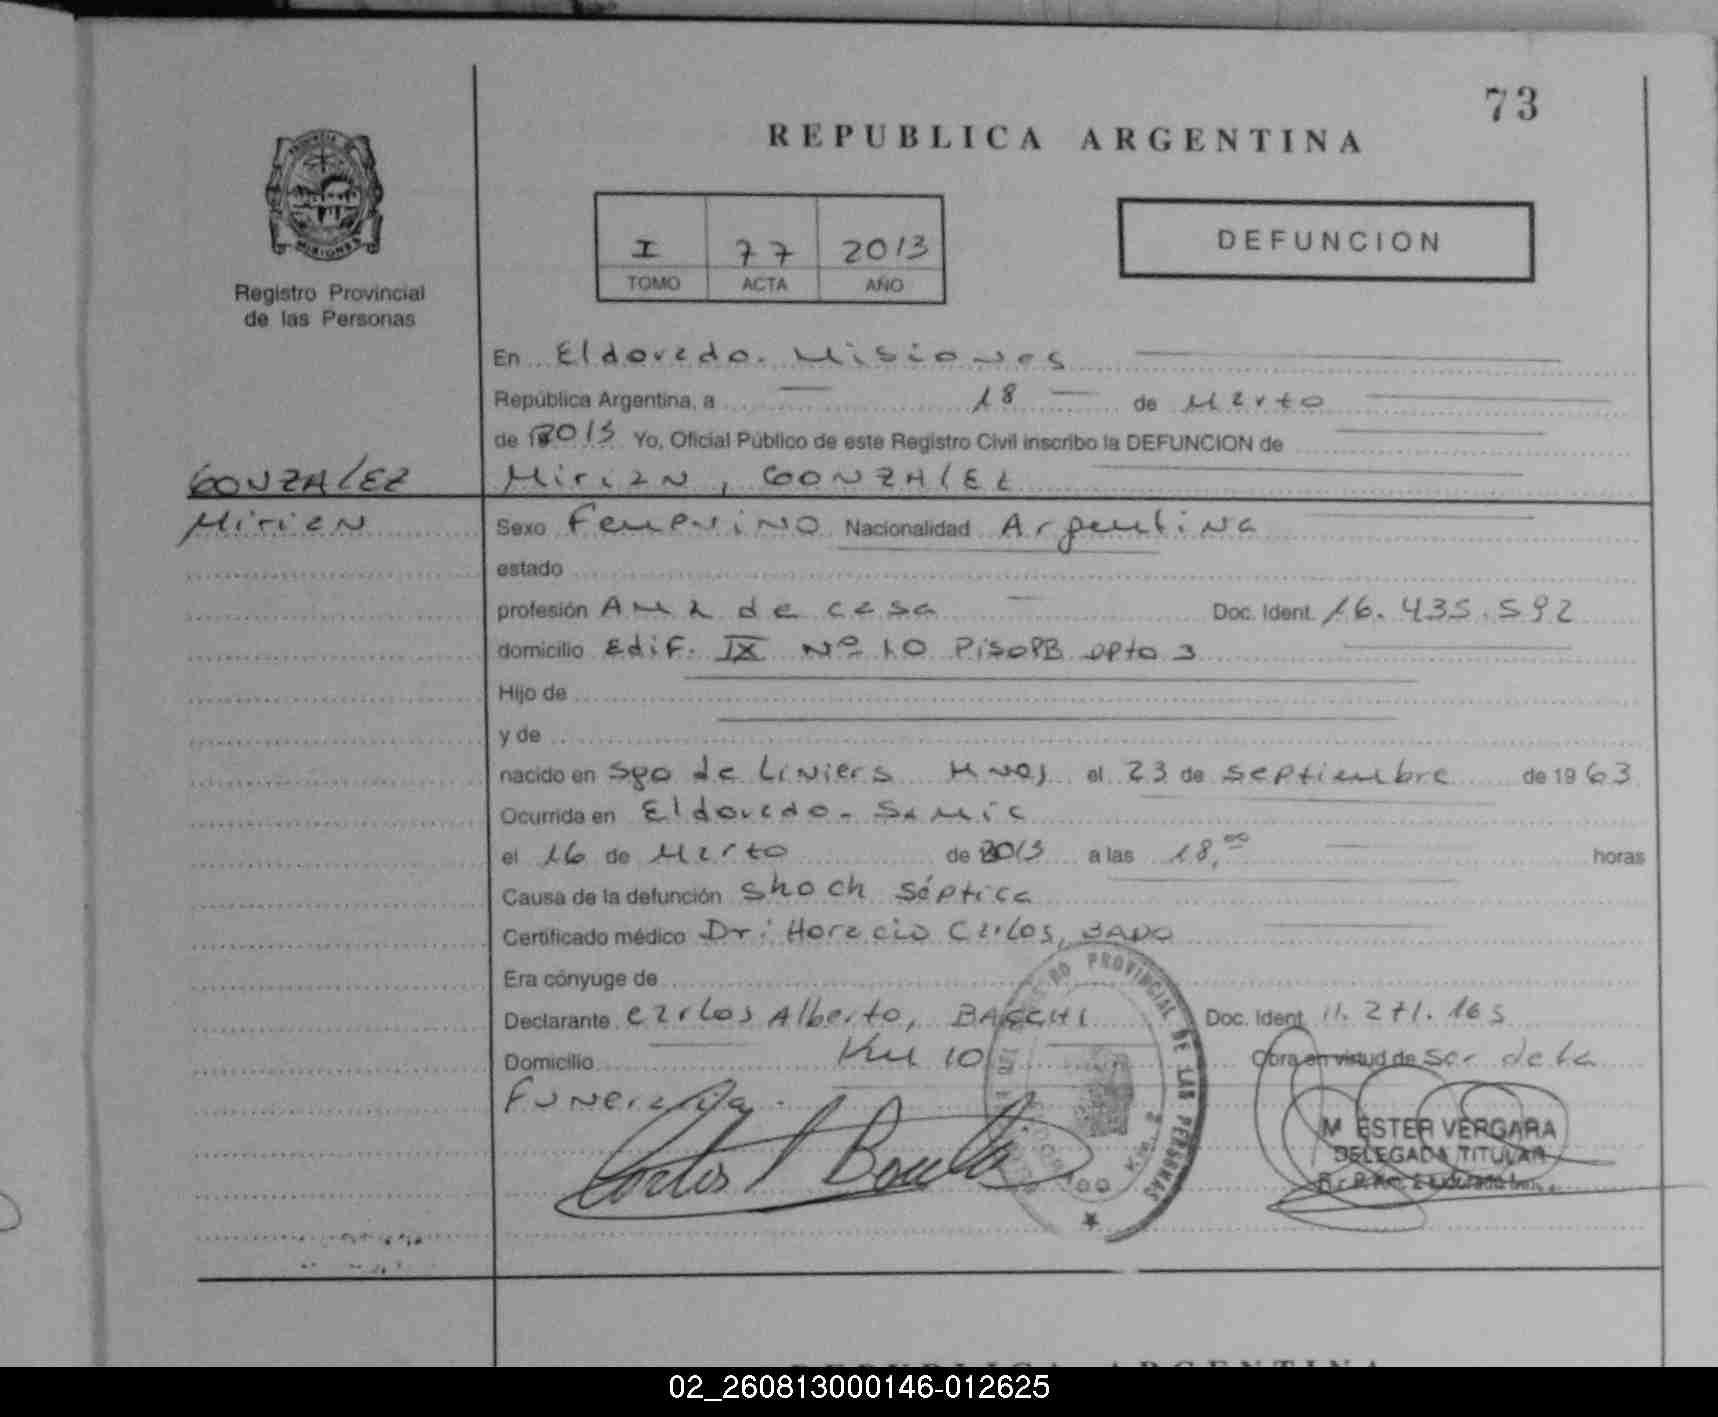 73
REPUBLICA ARGENTINA
PROVINCIA DE
MISIONES
Registro Provincial
de las Personas
I 77 2013
TOMO ACTA AÑO
DEFUNCION
En Eldorado. Misiones
República Argentina, a 18 de Marzo
de 2013 Yo, Oficial Público de este Registro Civil inscribo la DEFUNCION de
GONZALEZ
Mirian, GONZALEZ
Mirian
Sexo Femenino Nacionalidad Argentina
estado
profesión Ama de casa Doc. Ident. 16.435.592
domicilio Edif. IX Nº 10 Piso PB Dpto 3
Hijo de
y de
nacido en Sgo de Liniers Mnes el 23 de Septiembre de 1963
Ocurrida en Eldorado - Samic
el 16 de Marzo de 2013 a las 18,00 horas
Causa de la defunción Shoch Séptica
Certificado médico Dr: Horacio Carlos, BADO
Era cónyuge de
Declarante Carlos Alberto, Doc. Ident. 11.271.165
Domicilio Km 10 Obra en virtud de Ser de la
Funeraria.
PROVINCIAL DE LAS PERSONAS
Mª ESTER VERGARA
DELEGADA TITULAR
REPUBLICA ARGENTINA
02_260813000146-012625